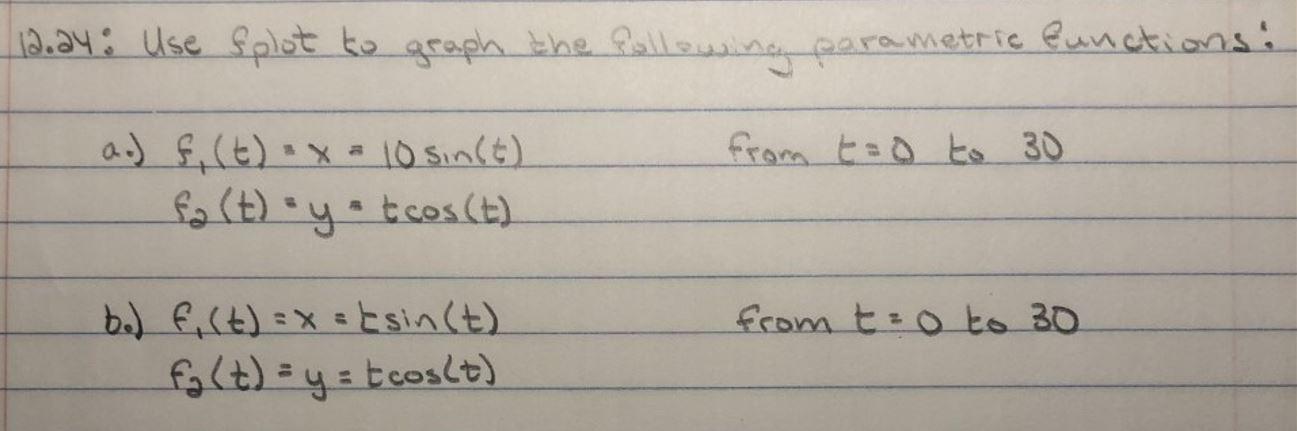 12.24: Use fplot to graph the following parametric functions:
a.) f₁(t) = x = 10 sin(t) from t=0 to 30
f₂(t) = y = tcos(t)
b.) f₁(t) = x = tsin(t) from t=0 to 30
f₂(t) = y = tcos(t)